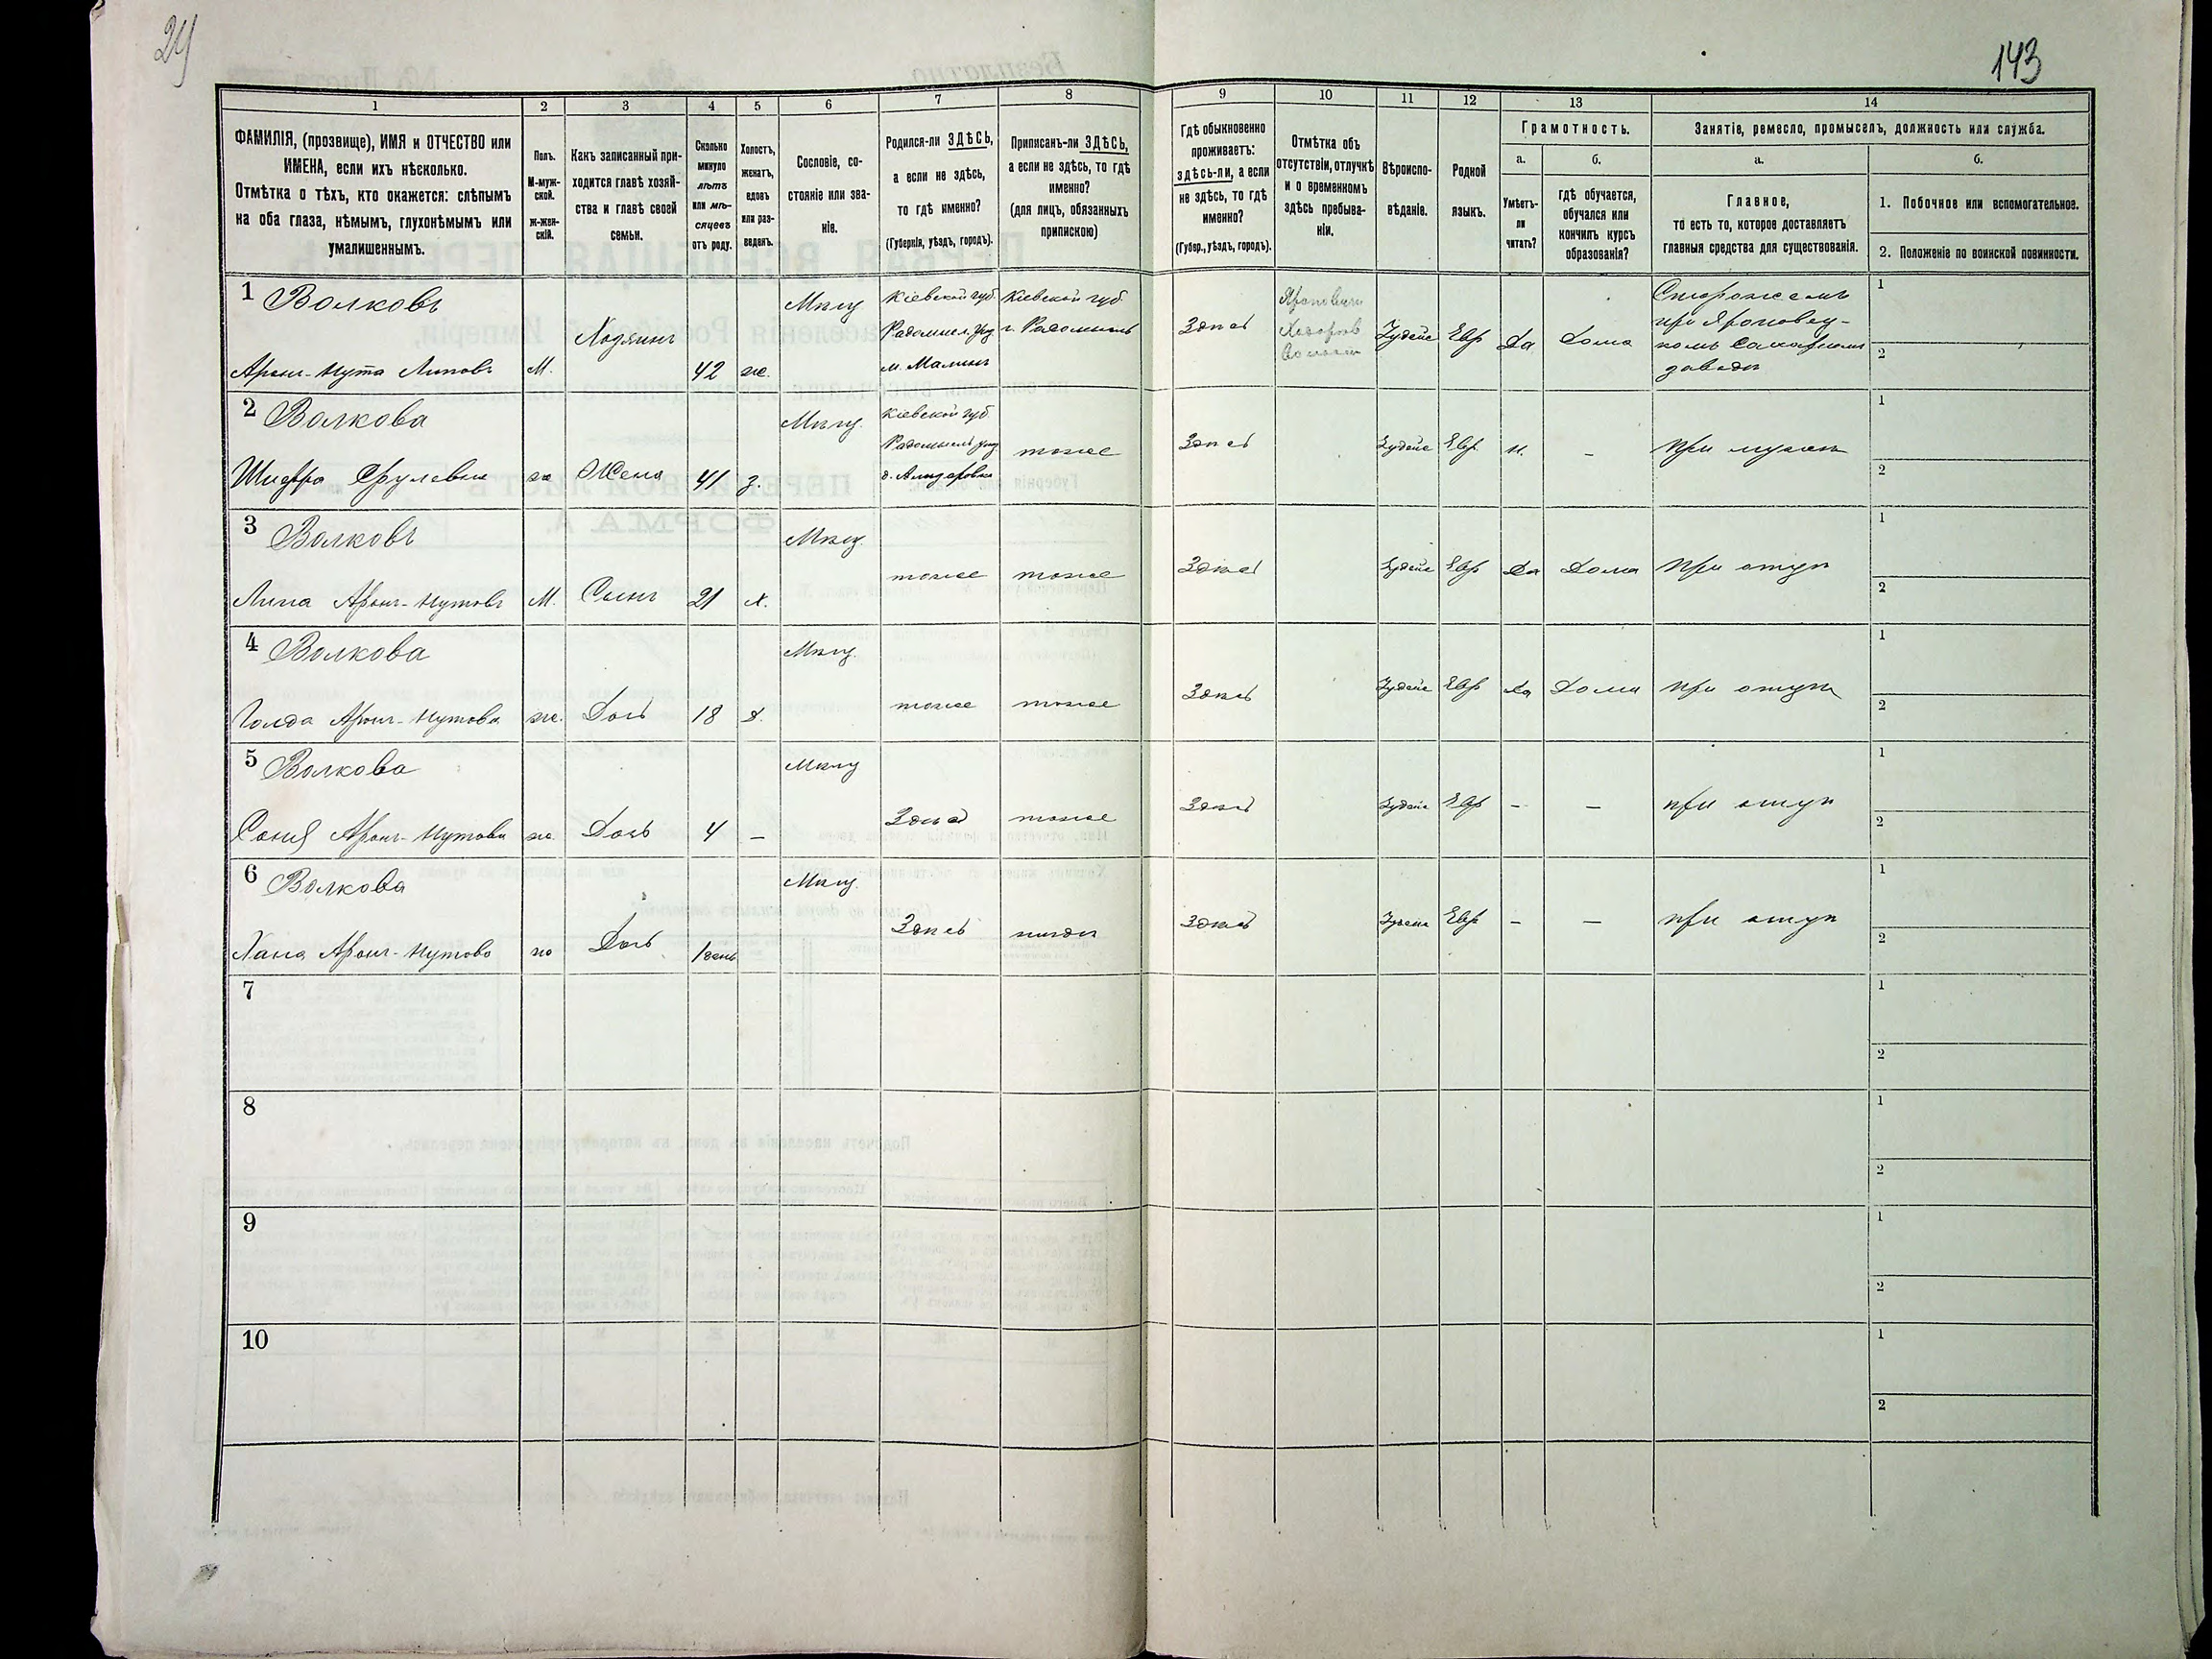 24
143
1 2 3 4 5 6 7 8 9 10 11 12 13 14
ФАМИЛІЯ, (прозвище), ИМЯ и ОТЧЕСТВО или
ИМЕНА, если ихъ нѣсколько.
Отмѣтка о тѣхъ, кто окажется: слѣпымъ
на оба глаза, нѣмымъ, глухонѣмымъ или
умалишеннымъ.
Полъ.
М-муж-
ской.
Ж-жен-
скій.
Какъ записанный при-
ходится главѣ хозяй-
ства и главѣ своей
семьи.
Сколько
минуло
лѣтъ
или мѣ-
сяцевъ
отъ роду.
Холостъ,
женатъ,
вдовъ
или раз-
веденъ.
Сословіе, со-
стояніе или зва-
ніе.
Родился-ли ЗДѢСЬ,
а если не здѣсь,
то гдѣ именно?
(Губернія, уѣздъ, городъ).
Приписанъ-ли ЗДѢСЬ,
а если не здѣсь, то гдѣ
именно?
(для лицъ, обязанныхъ
припискою)
Гдѣ обыкновенно
проживаетъ:
здѣсь-ли, а если
не здѣсь, то гдѣ
именно?
(Губер., уѣздъ, городъ).
Отмѣтка объ
отсутствіи, отлучкѣ
и о временномъ
здѣсь пребыва-
ніи.
Вѣроиспо-
вѣданіе.
Родной
языкъ.
Грамотность.
а.
Умѣетъ-
ли
читать?
б.
гдѣ обучается,
обучался или
кончилъ курсъ
образованія?
Занятіе, ремесло, промыселъ, должность или служба.
а.
Главное,
то есть то, которое доставляетъ
главныя средства для существованія.
б.
1. Побочное или вспомогательное.
2. Положеніе по воинской повинности.
1 Волковъ
Аронъ-Нута Липовъ
М.
Хозяинъ
42
ж.
Мѣщ
Кіевской губ.
Радомысл. уѣз
м. Малинъ
Кіевской губ.
г. Радомысль
Здѣсь
Іудейс
Евр
Да
Дома
Сторожемъ
при Яроповец-
комъ Сахарномъ
заводѣ
1
2
2 Волкова
Шифра Срулевна
ж
Жена
41
з.
Мѣщ.
Кіевской губ.
Радомысль уѣз
тоже
Здѣсь
Іудейс
Евр.
н.
–
При мужѣ
1
2
3 Волковъ
Липа Аронъ-Нутовъ
М.
Сынъ
21
х.
Мѣщ.
тоже
тоже
Здѣсь
Іудейс
Евр
Да
Дома
При отцѣ
1
2
4 Волкова
Голда Аронъ-Нутова
ж.
Дочь
18
д.
Мѣщ.
тоже
тоже
Здѣсь
Іудейс
Евр
Да
Дома
при отцѣ
1
2
5 Волкова
Соня Аронъ-Нутова
ж.
Дочь
4
–
Мѣщ
Здѣсь
тоже
Здѣсь
Іудейс
Евр
–
–
при отцѣ
1
2
6 Волкова
Хана Аронъ-Нутова
ж
Дочь
1 день
Мѣщ.
Здѣсь
Здѣсь
Іудейс
Евр
–
–
при отцѣ
1
2
7
1
2
8
1
2
9
1
2
10
1
2